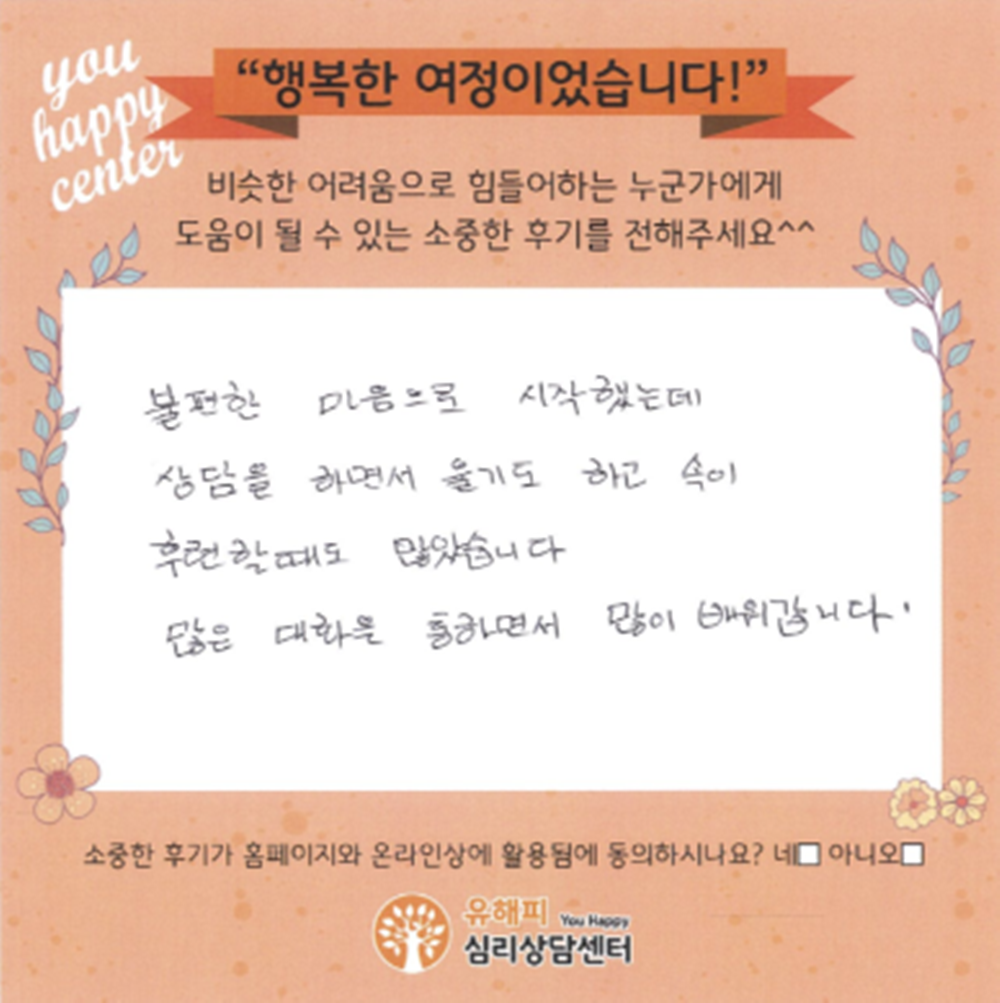 you
happy
center
“행복한 여정이었습니다!”
비슷한 어려움으로 힘들어하는 누군가에게
도움이 될 수 있는 소중한 후기를 전해주세요^^
불편한 마음으로 시작했는데
상담을 하면서 울기도 하고 속이
후련할때도 많았습니다
많은 대화을 통하면서 많이 배워갑니다.
소중한 후기가 홈페이지와 온라인상에 활용됨에 동의하시나요? 네□ 아니오□
유해피 You Happy
심리상담센터